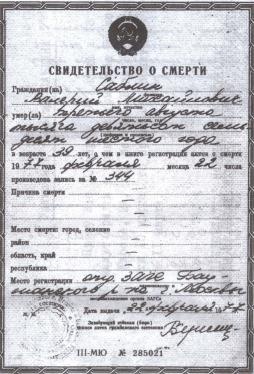 СВИДЕТЕЛЬСТВО О СМЕРТИ
Гражданин(ка) Саблин
Валерий Михайлович
умер(ла) третьего августа
тысяча девятьсот семь
десят шестого года
в возрасте 39 лет, о чем в книге регистрации актов о смерти
1977 года февраля месяца 22 числа
произведена запись за № 344
Причина смерти —
Место смерти: город, селение —
район —
область, край —
республика —
Место регистрации отд. ЗАГС Бау
манского р-на г. Москвы
Дата выдачи 22 февраля 1977
Заведующий отделом (бюро)
записи актов гражданского состояния
III-МЮ № 285021